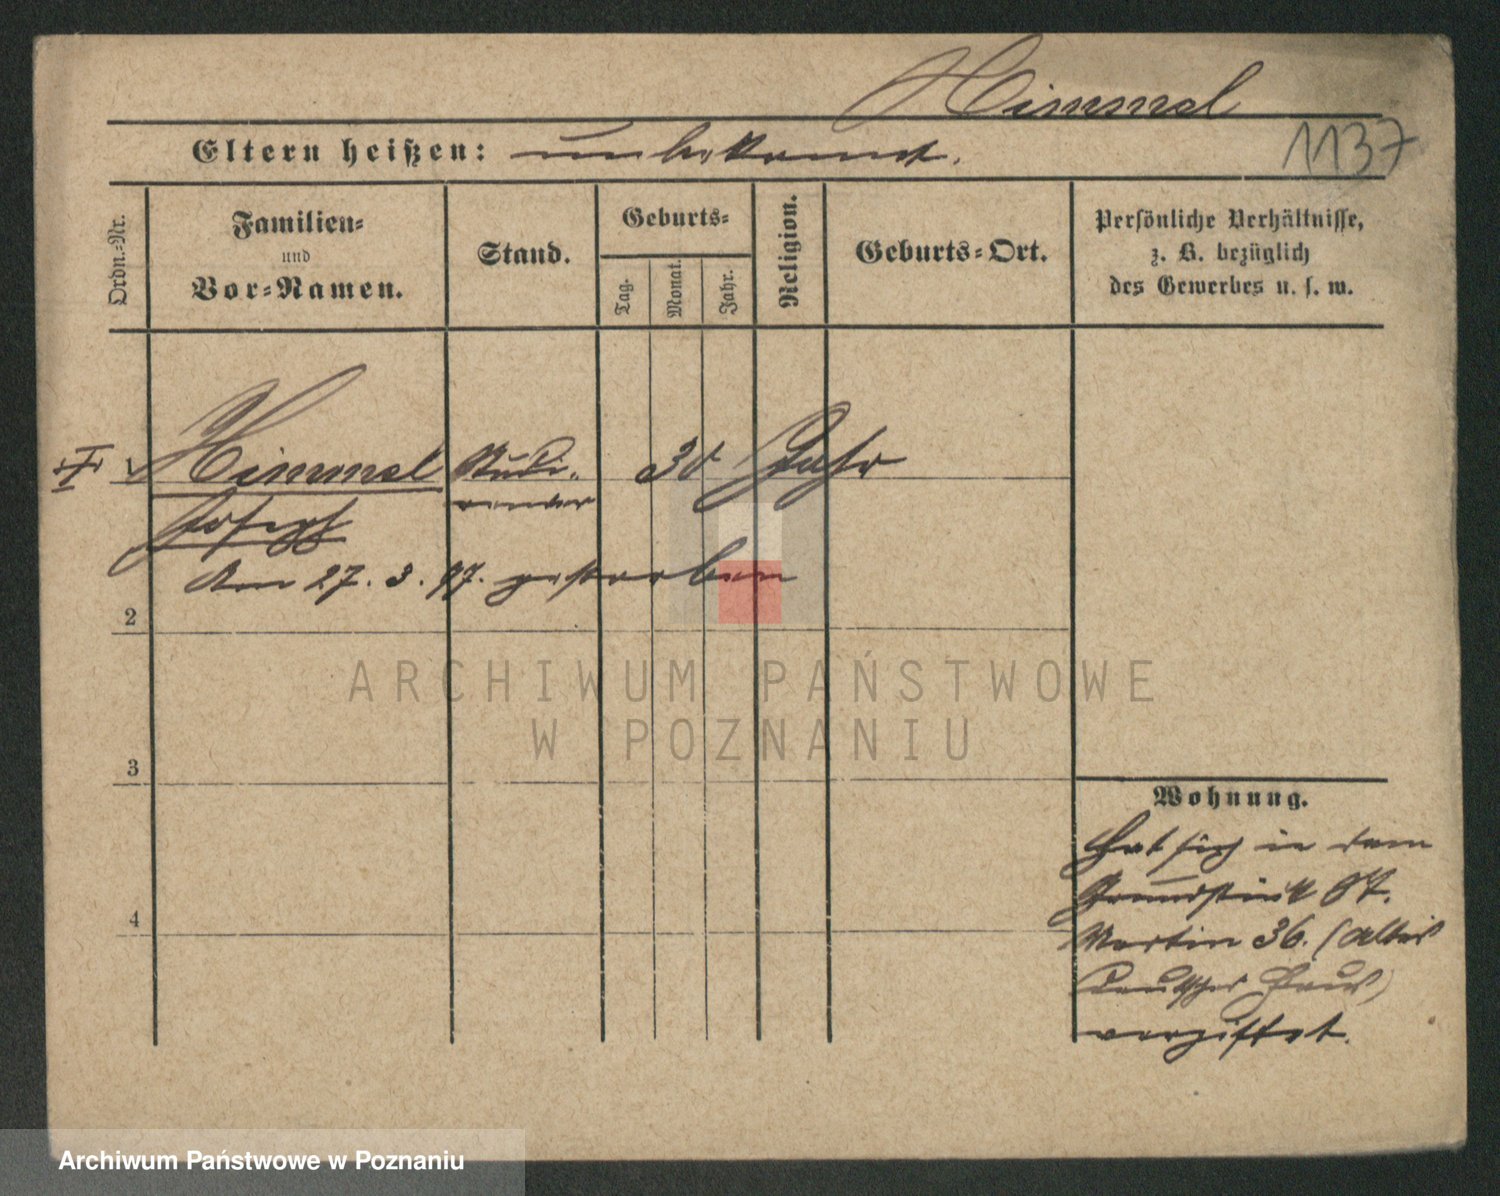 Himmel
Eltern heißen: unbekannt.
1137
Ordn.-Nr.
Familien-
und
Vor-Namen.
Stand.
Geburts-
Tag.
Monat.
Jahr.
Religion.
Geburts-Ort.
Persönliche Verhältnisse,
z. B. bezüglich
des Gewerbes u. s. w.
Himmel Studi- 30 Jahr
render
Joseph
Am 27. 3. 97. gestorben
2
ARCHIWUM PAŃSTWOWE
W POZNANIU
3
Wohnung.
Hat sich in dem
Grundstück St.
4
Martin 36. (Altes
Deutsches Haus)
vergiftet.
Archiwum Państwowe w Poznaniu